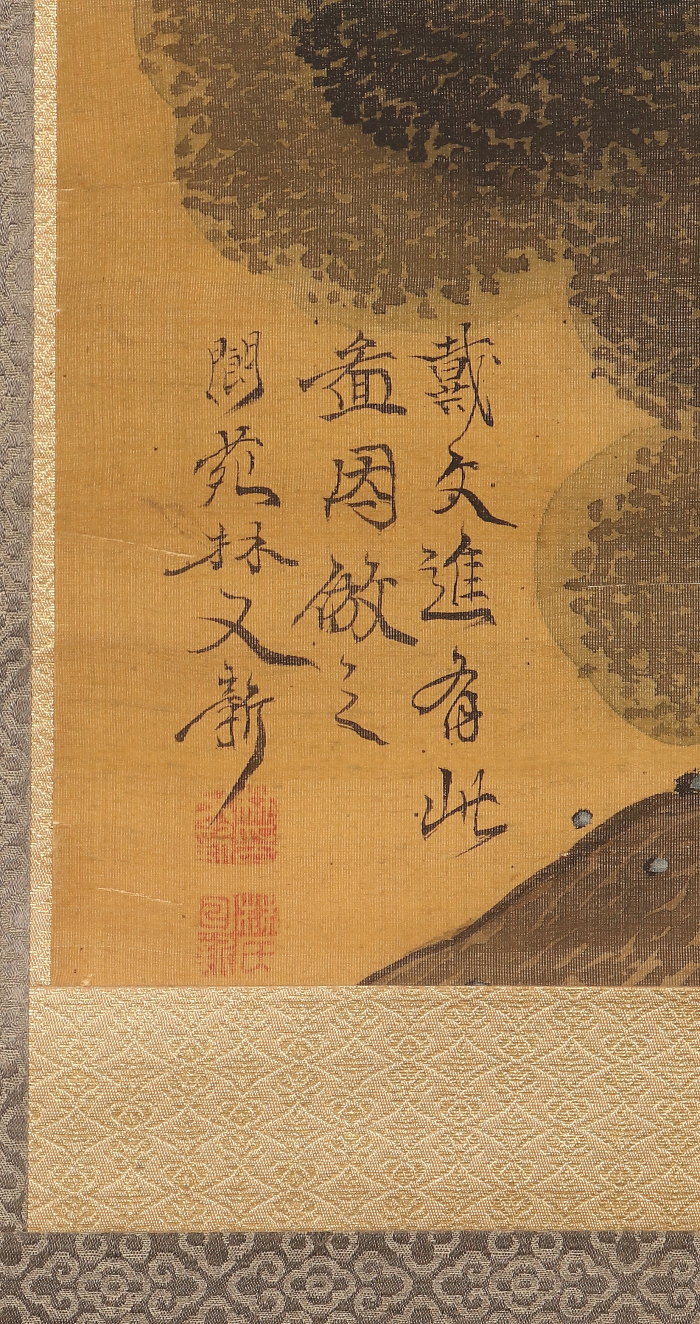 戴文進有此
畵因倣之
閬苑林又新